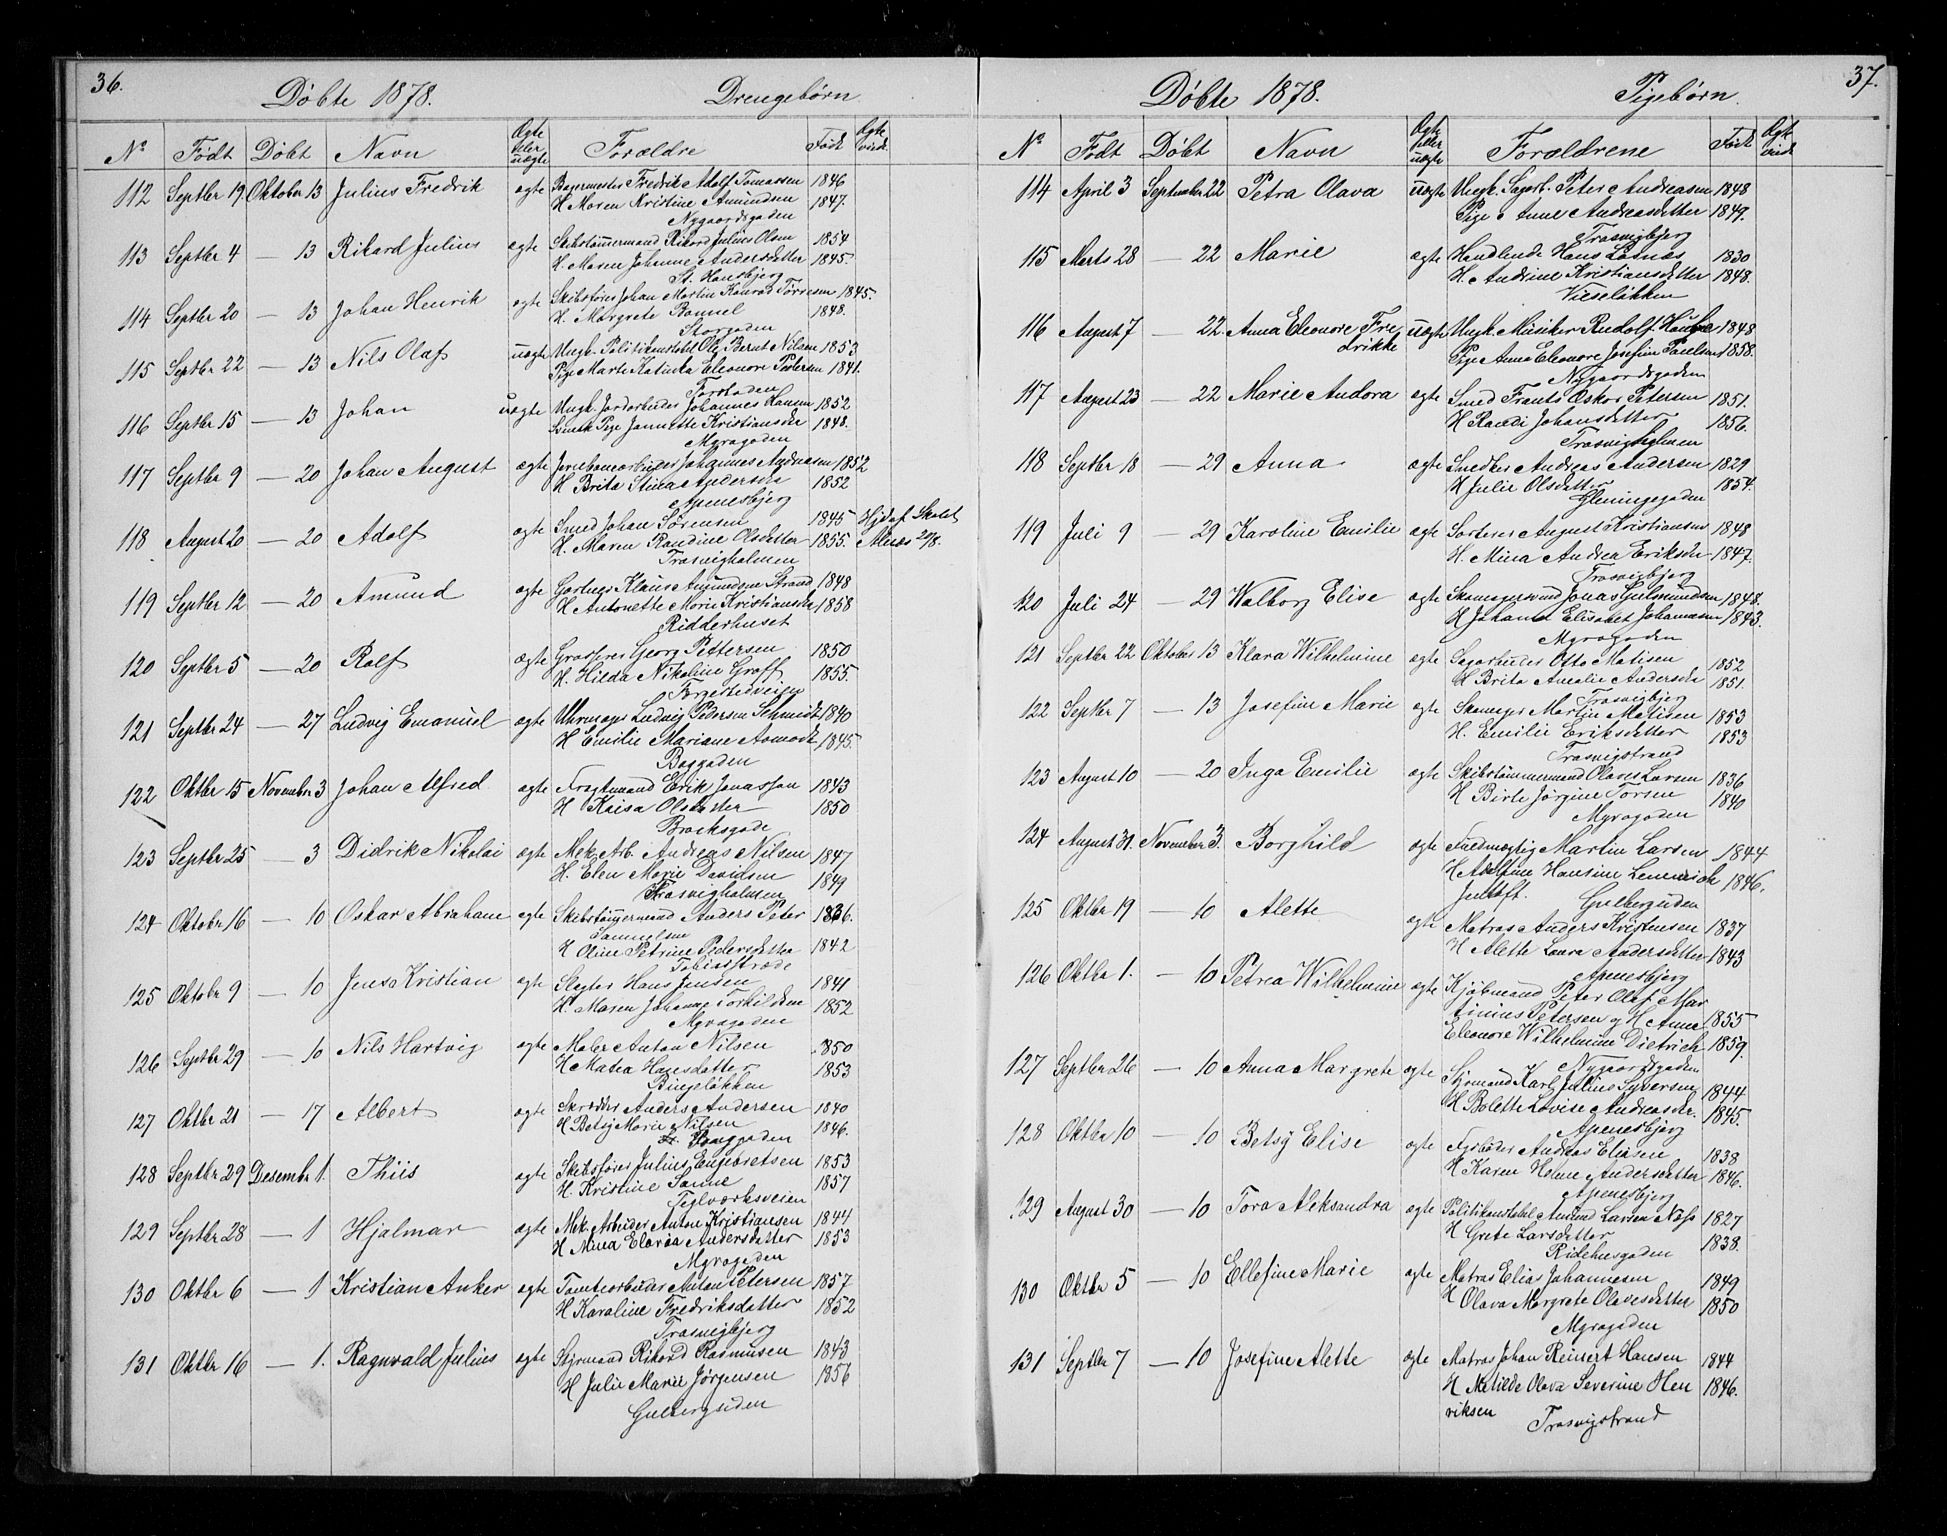 36.
Döbte 1878. Drengebørn
No Födt Döbt Navn Ægte eller uægte Forældre Født
112 Septbr 19. Oktober 13 Julius Fredrik ægte Bagermester Fredrik Adolf Tomassen 1846
H. Maren Kristine Amundsen 1847.
Nygaardsgaden
113 Septbr 4 — 13 Rikard Julius ægte Skibstömmermand Rikard Julius Olsen 1854
H. Maren Johanne Andersdatter 1845.
St. Hansbjerg
114 Septbr 20 — 13 Johan Henrik ægte Skibsförer Johan Martin Konrad Törresen 1845.
H. Margrete Bommel 1848.
Storgaden
115 Septbr 22 — 13 Nils Olaf uægte Ungk. Politikonstabel Ole Bernt Nilsen 1853
Pige Marte Katinka Eleonore Pedersen 1841.
Forstaden
116 Septbr 15 — 13 Johan uægte Ungk. Jordarbeider Johannes Hansen 1852
Svensk Pige Jannette Kristiansdr 1848.
Myragaden
117 Septbr 9 — 20 Johan August ægte Jernbanearbeider Johannes Andreasen 1852
H. Brita Stina Andersdr 1852
Apenesbjerg
118 August 20 — 20 Adolf ægte Smed Johan Sörensen 1845
H. Maren Randine Olsdatter 1855.
Trosvigholmen
119 Septbr 12 — 20 Amund ægte Gartner Klaus Amundsen Strand 1848
H. Antonette Marie Kristiansda 1858
Ridderhuset
120 Septbr 5 — 20 Rolf ægte Georg Pettersen 1850
H. Hilda Nikoline Groff 1855.
Færgestedveien
121 Septbr 24 — 27 Ludvig Emanuel ægte Uhrmager Ludvig Pedersen Schmidt 1840
H Emilie Mariane Aamodt 1845.
Baggaden
122 Oktbr 15 November 3 Johan Alfred ægte Fragtmand Erik Jonasson 1843
H Kaisa Olsdatter 1850
Brocksgade
123 Septbr 25 — 3 Didrik Nikolai ægte Mek. Arb. Andreas Nilsen 1847
H. Elen Marie Davidsen 1849
Trosvigholmen
124 Oktober 16 — 10 Oskar Abraham ægte Skibstömmermand Anders Peter 1836.
Samuelsen
H Oline Petrine Pedersdatter 1842
Tobiasstræde
125 Oktobr 9 — 10 Jens Kristian ægte Slagter Hans Jensen 1841
H. Maren Johanne Torkildsen 1852
Myragaden
126 Septbr 29 — 10 Nils Hartvig ægte Maler Anton Nilsen 1850
H Matea Hansdatter 1853
Bingeløkken
127 Oktbr 21 — 17 Albert ægte Skrædder Anders Andersen 1840
H Betsy Marie Nilsen 1846.
128 Septbr 29 Desembr 1. Thiis ægte Skibsförer Julius Engebretsen 1853
H. Kristine Sanne 1857
Teglværksveien
129 Septbr 28 — 1 Hjalmar ægte Mek. Arbeider Anton Kristiansen 1844
H Mina Elavia Andersdatter 1853
Myragaden
130 Oktbr 6 — 1 Kristian Anker ægte Tomtearbeider Anton Petersen 1857
H Karoline Fredriksdatter 1852
Trosvigbjerg
131 Oktbr 16 — 1. Ragnvald Julius ægte Styrmand Rikard Rasmusen 1843
H Julie Marie Jörgensen 1856
Gulbergsiden
37.
Döbte 1878. Pigebørn.
No Födt Döbt Navn Ægte eller uægte Forældrene Født
114 April 3 September 22 Petra Olava uægte Ungk. Sagarb. Peter Andreasen 1848
Pige Anne Andreasdatter 1849.
Trosvigbjerg
115 Marts 28 — 22 Marie ægte Handlende Hans Lötnæs 1830
H. Andrine Kristiansdatter 1848.
Vieseløkken
116 August 7 — 22 Anna Eleonore Fre uægte Ungk. Musiker Rudolf 1848
drikke Pige Anna Eleonore Josefine Poulsen 1858.
Nygaardsgaden
117 August 23 — 22 Marie Andora ægte Smed Frants Oskar Petersen 1851.
H Randi Johansdatter 1856.
Trosvigholmen
118 Septbr 18 — 29 Anna ægte Andreas Andersen 1829
H Julie Olsdatter 1854.
Gleningegaden
119 Juli 9 — 29 Karoline Emilie ægte Sorterer August Kristiansen 1848
H. Mina Andrea Eriksdr 1847.
Trosvigbjerg
120 Juli 24 — 29 Walborg Elise ægte Skomagersvend Jonas Gulmundsen 1848.
H Johanna Elisabet Johannesen 1843.
Myragaden
121 Septbr 22 Oktober 13 Klara Wilhelmine ægte Sagarbeider Otto Matisen 1852
H Brita Amalie Andersdr 1851.
Trosvigbjerg
122 Septbr 7 — 13 Josefine Marie ægte Skomager Martin Matisen 1853
H. Emilie Eriksdatter 1853
Trosvigstrand
123 August 10 — 20 Inga Emilie ægte Skibstömmermand Olaves Larsen 1836
H Birte Jörgine Torsen 1840
Myragaden
124 August 31. November 3. Borghild ægte Fuldmægtig Martin Larsen 1844
H Adolfine Hansine Lemmich 1846.
Gulbergsiden
125 Oktbr 19 — 10 Alette ægte Matros Anders Kristensen 1837
H Alette Laura Andersdatter 1843
Apenesbjerg
126 Oktbr 1. — 10 Petrea Wilhelmine ægte Kjöbmand Peter Olaf Mar
tinius Petersen og H Anne 1855
Eleonore Wilhelmine Dietrich 1859.
Nygaardsgaden
127 Septbr 26 — 10 Anna Margrete ægte Styrmand Karl Julius Syversen 1844
H Bolette Lovise Andreasdr. 1845.
Apenesbjerg
128 Oktbr 10 — 10 Betsy Elise ægte Fyrböder Andreas Eliasen 1838
H Karen Helene Andersdatter 1846.
Apenesbjerg
129 August 30 — 10 Tora Aleksandra ægte Politikonstabel Amund Larsen Næss 1827
H Grete Larsdatter 1838.
Ridehusgaden
130 Oktbr 5 — 10 Ellefine Marie ægte Matros Elias Johannesen 1849
H Olava Margrete Olavesdatter 1850
Myragaden
131 Septbr 7 — 10 Josefine Alette ægte Matros Johan Reinert Hansen 1844
H Matilde Olava Severine Hen 1846.
riksen
Trosvigstrand